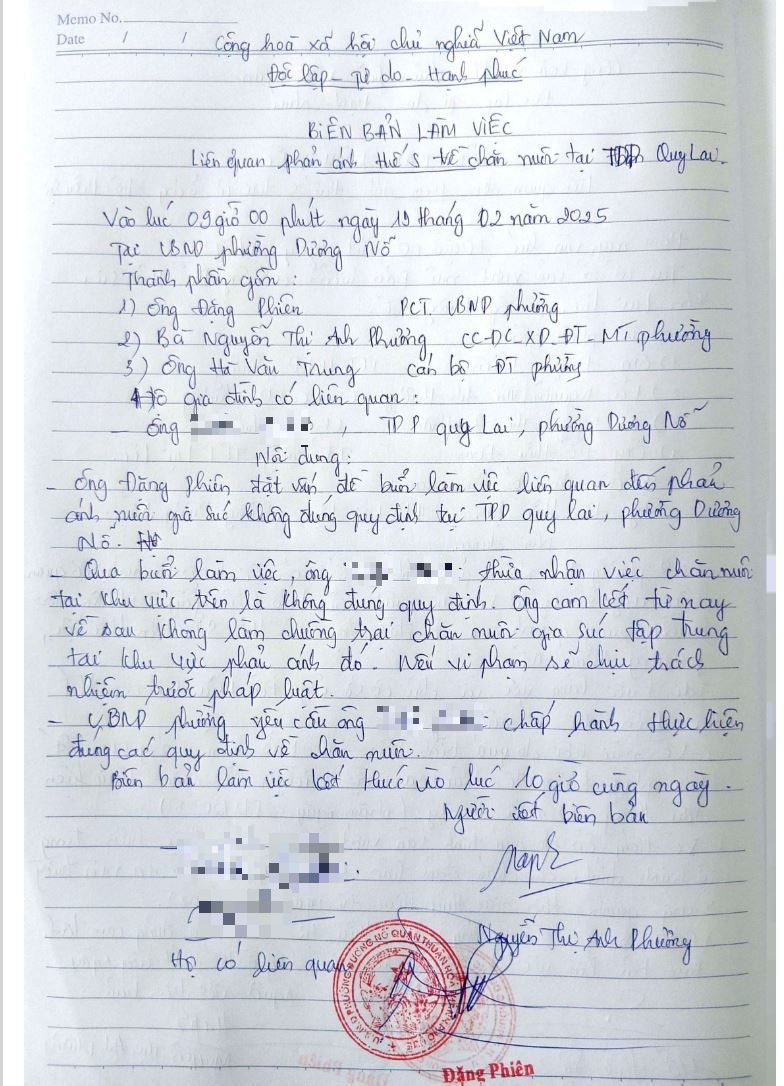 Memo No.
Date / /
Cộng hoà xã hội chủ nghĩa Việt Nam
Độc lập - Tự do - Hạnh phúc
BIÊN BẢN LÀM VIỆC
Liên quan phản ánh Huế S về chăn nuôi tại TDP Quy Lai.
Vào lúc 09 giờ 00 phút ngày 19 tháng 02 năm 2025
Tại UBND phường Dương Nỗ
Thành phần gồm:
1) Ông Đặng Phiên PCT. UBND phường
2) Bà Nguyễn Thị Anh Phương CC-ĐC-XD-ĐT-MT phường
3) Ông Hà Văn Trung cán bộ ĐT phường
4) Hộ gia đình có liên quan:
- Ông , TDP quy Lai, phường Dương Nỗ
Nội dung:
- Ông Đặng Phiên đặt vấn đề buổi làm việc liên quan đến phản
ánh nuôi gia súc không đúng quy định tại TDP quy lai, phường Dương
Nỗ.
- Qua buổi làm việc, ông thừa nhận việc chăn nuôi
tại khu vực trên là không đúng quy định. Ông cam kết từ nay
về sau không làm chuồng trại chăn nuôi gia súc tập trung
tại khu vực phản ánh đó. Nếu vi phạm sẽ chịu trách
nhiệm trước pháp luật.
- UBND phường yêu cầu ông chấp hành thực hiện
đúng các quy định về chăn nuôi.
Biên bản làm việc kết thúc vào lúc 10 giờ cùng ngày.
Người viết biên bản
Nguyễn Thị Anh Phương
Hộ có liên quan
Đặng Phiên